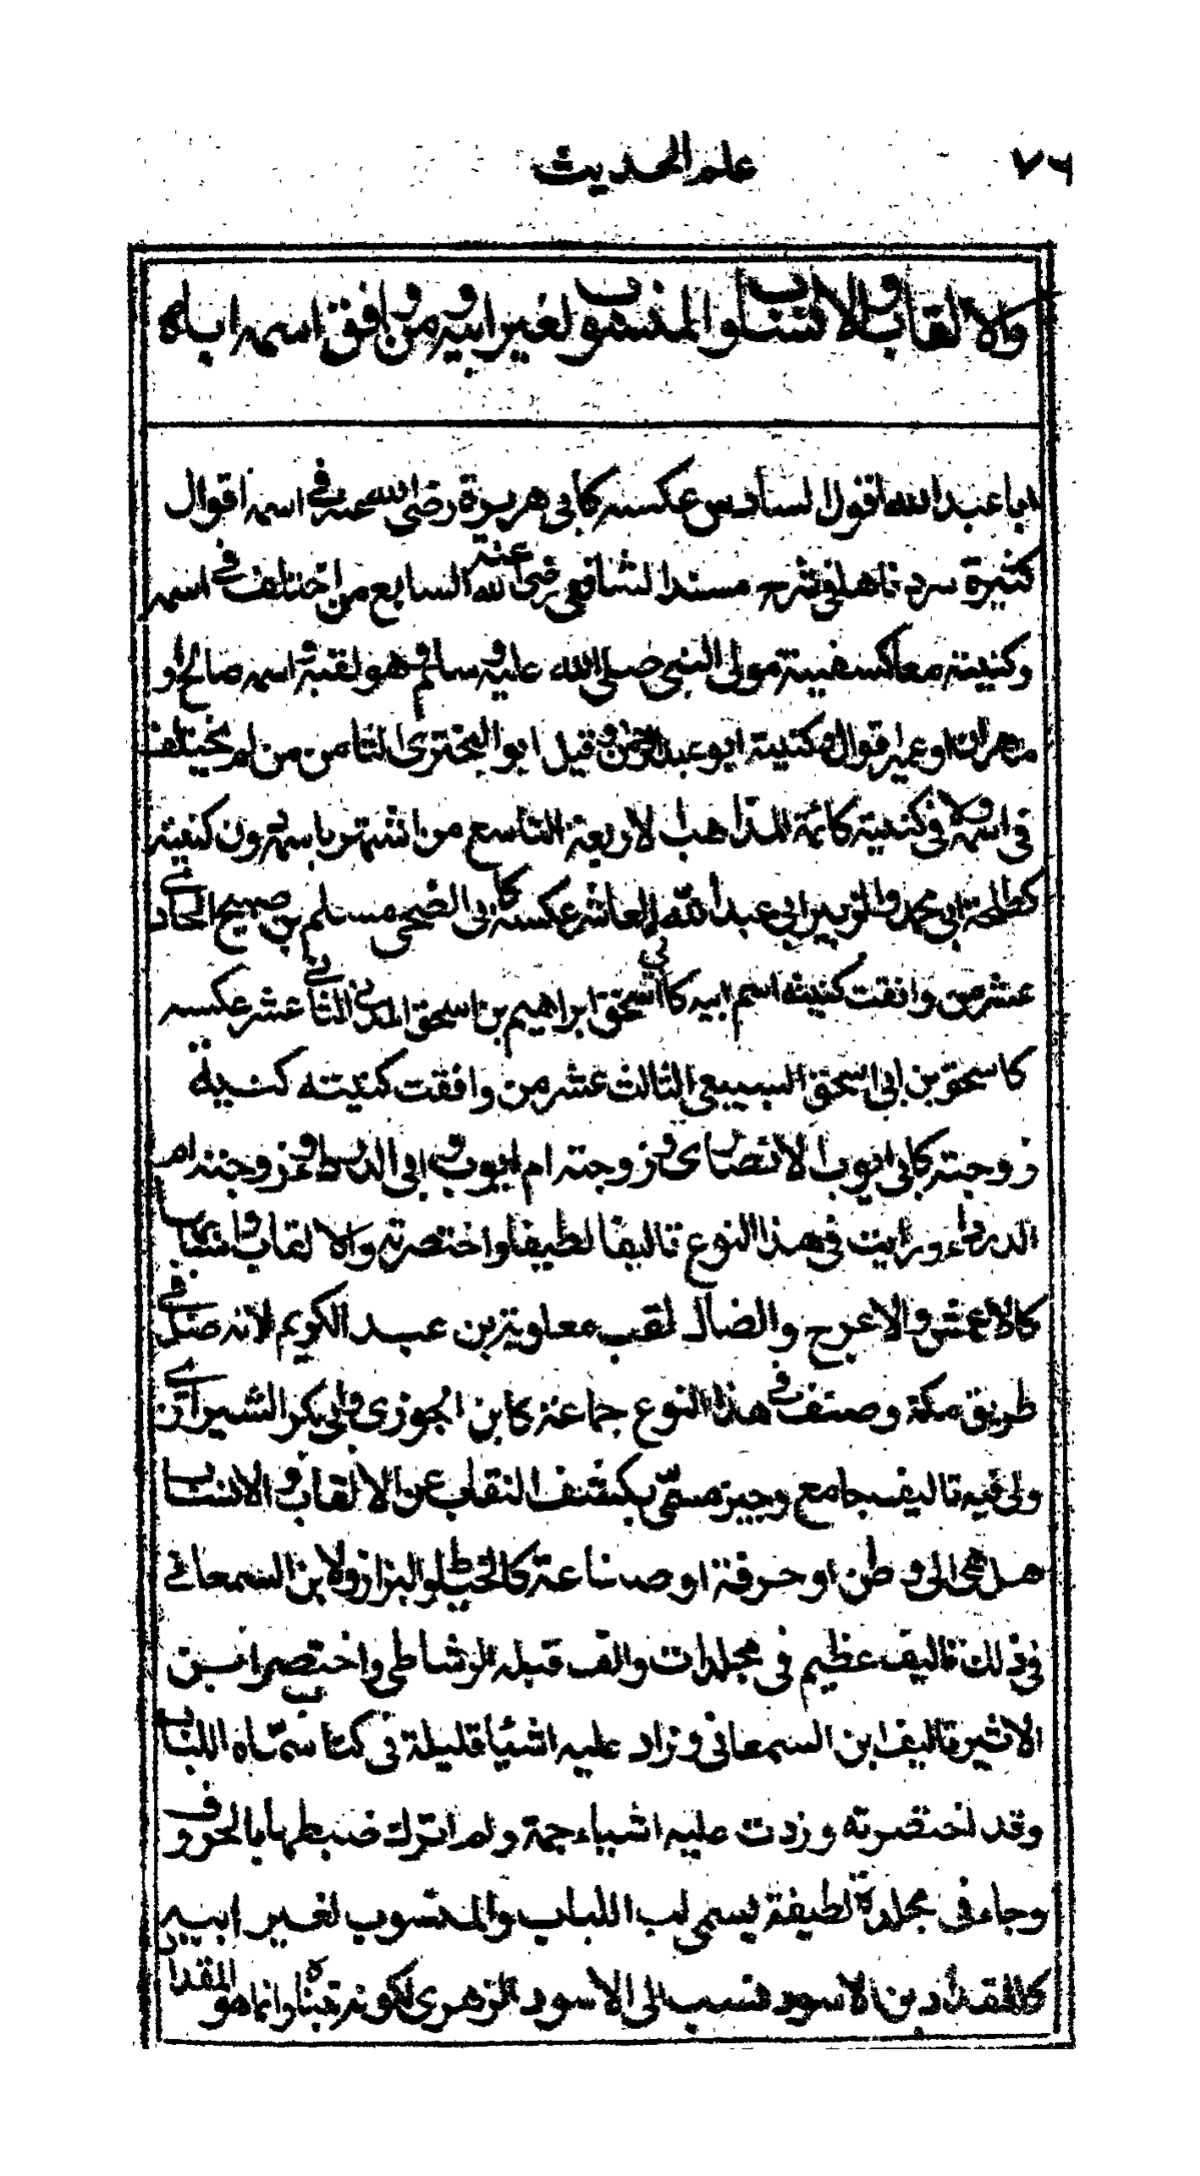 ٧٦
علم الحديث
والالقاب والانساب والمنسوب لغير ابيه ومن وافق اسمه اباه
ابا عبد الله اقول السادس عكسه كابى هريرة رضى الله عنه فى اسمه اقوال
كثيرة سردناها فى شرح مسند الشافعى رضى الله عنه السابع من اختلف فى اسمه
وكنيته معا كسفينة مولى النبى صلى الله عليه وسلم وهو لقبه واسمه صالح او
مهران او عمير اقوال وكنيته ابو عبد الرحمن وقيل ابو البخترى الثامن من لم يختلف
فى اسمه ولا فى كنيته كائمة المذاهب الاربعة التاسع من اشتهر باسمه دون كنيته
كطلحة ابى محمد والزبير ابى عبد الله العاشر عكسه كابى الضحى مسلم بن صبيح الحادى
عشر من وافقت كنيته اسم ابيه كابى اسحق ابراهيم بن اسحق المدنى الثانى عشر عكسه
كاسحق بن ابى اسحق السبيعى الثالث عشر من وافقت كنيته كنية
زوجته كابى ايوب الانصارى وزوجته ام ايوب وابى الدرداء وزوجته ام
الدرداء ورايت فى هذا النوع تاليفا لطيفا واختصرته والالقاب وانسابها
كالاعمش والاعرج والضال لقب معاوية بن عبد الكريم لانه ضل فى
طريق مكة وصنف فى هذا النوع جماعة كابن الجوزى وابى بكر الشيرازى
ولى فيه تاليف جامع وجيز مسمّى بكشف النقاب عن الالقاب والانساب
هل هى الى وطن او حرفة او صناعة كالخياط والبزاز ولابن السمعانى
فى ذلك تاليف عظيم فى مجلدات والف قبله الرشاطى واختصر ابن
الاثير تاليف ابن السمعانى وزاد عليه اشيا قليلة فى كتاب سمّاه اللباب
وقد اختصرته وزدت عليه اشياء جمة ولم اترك ضبطها بالحروف
وجاء فى مجلدة لطيفة يسمى لب اللباب والمنسوب لغير ابيه
كالمقداد بن الاسود نسب الى الاسود الزهرى لكونه تبناه وانما هو المقداد